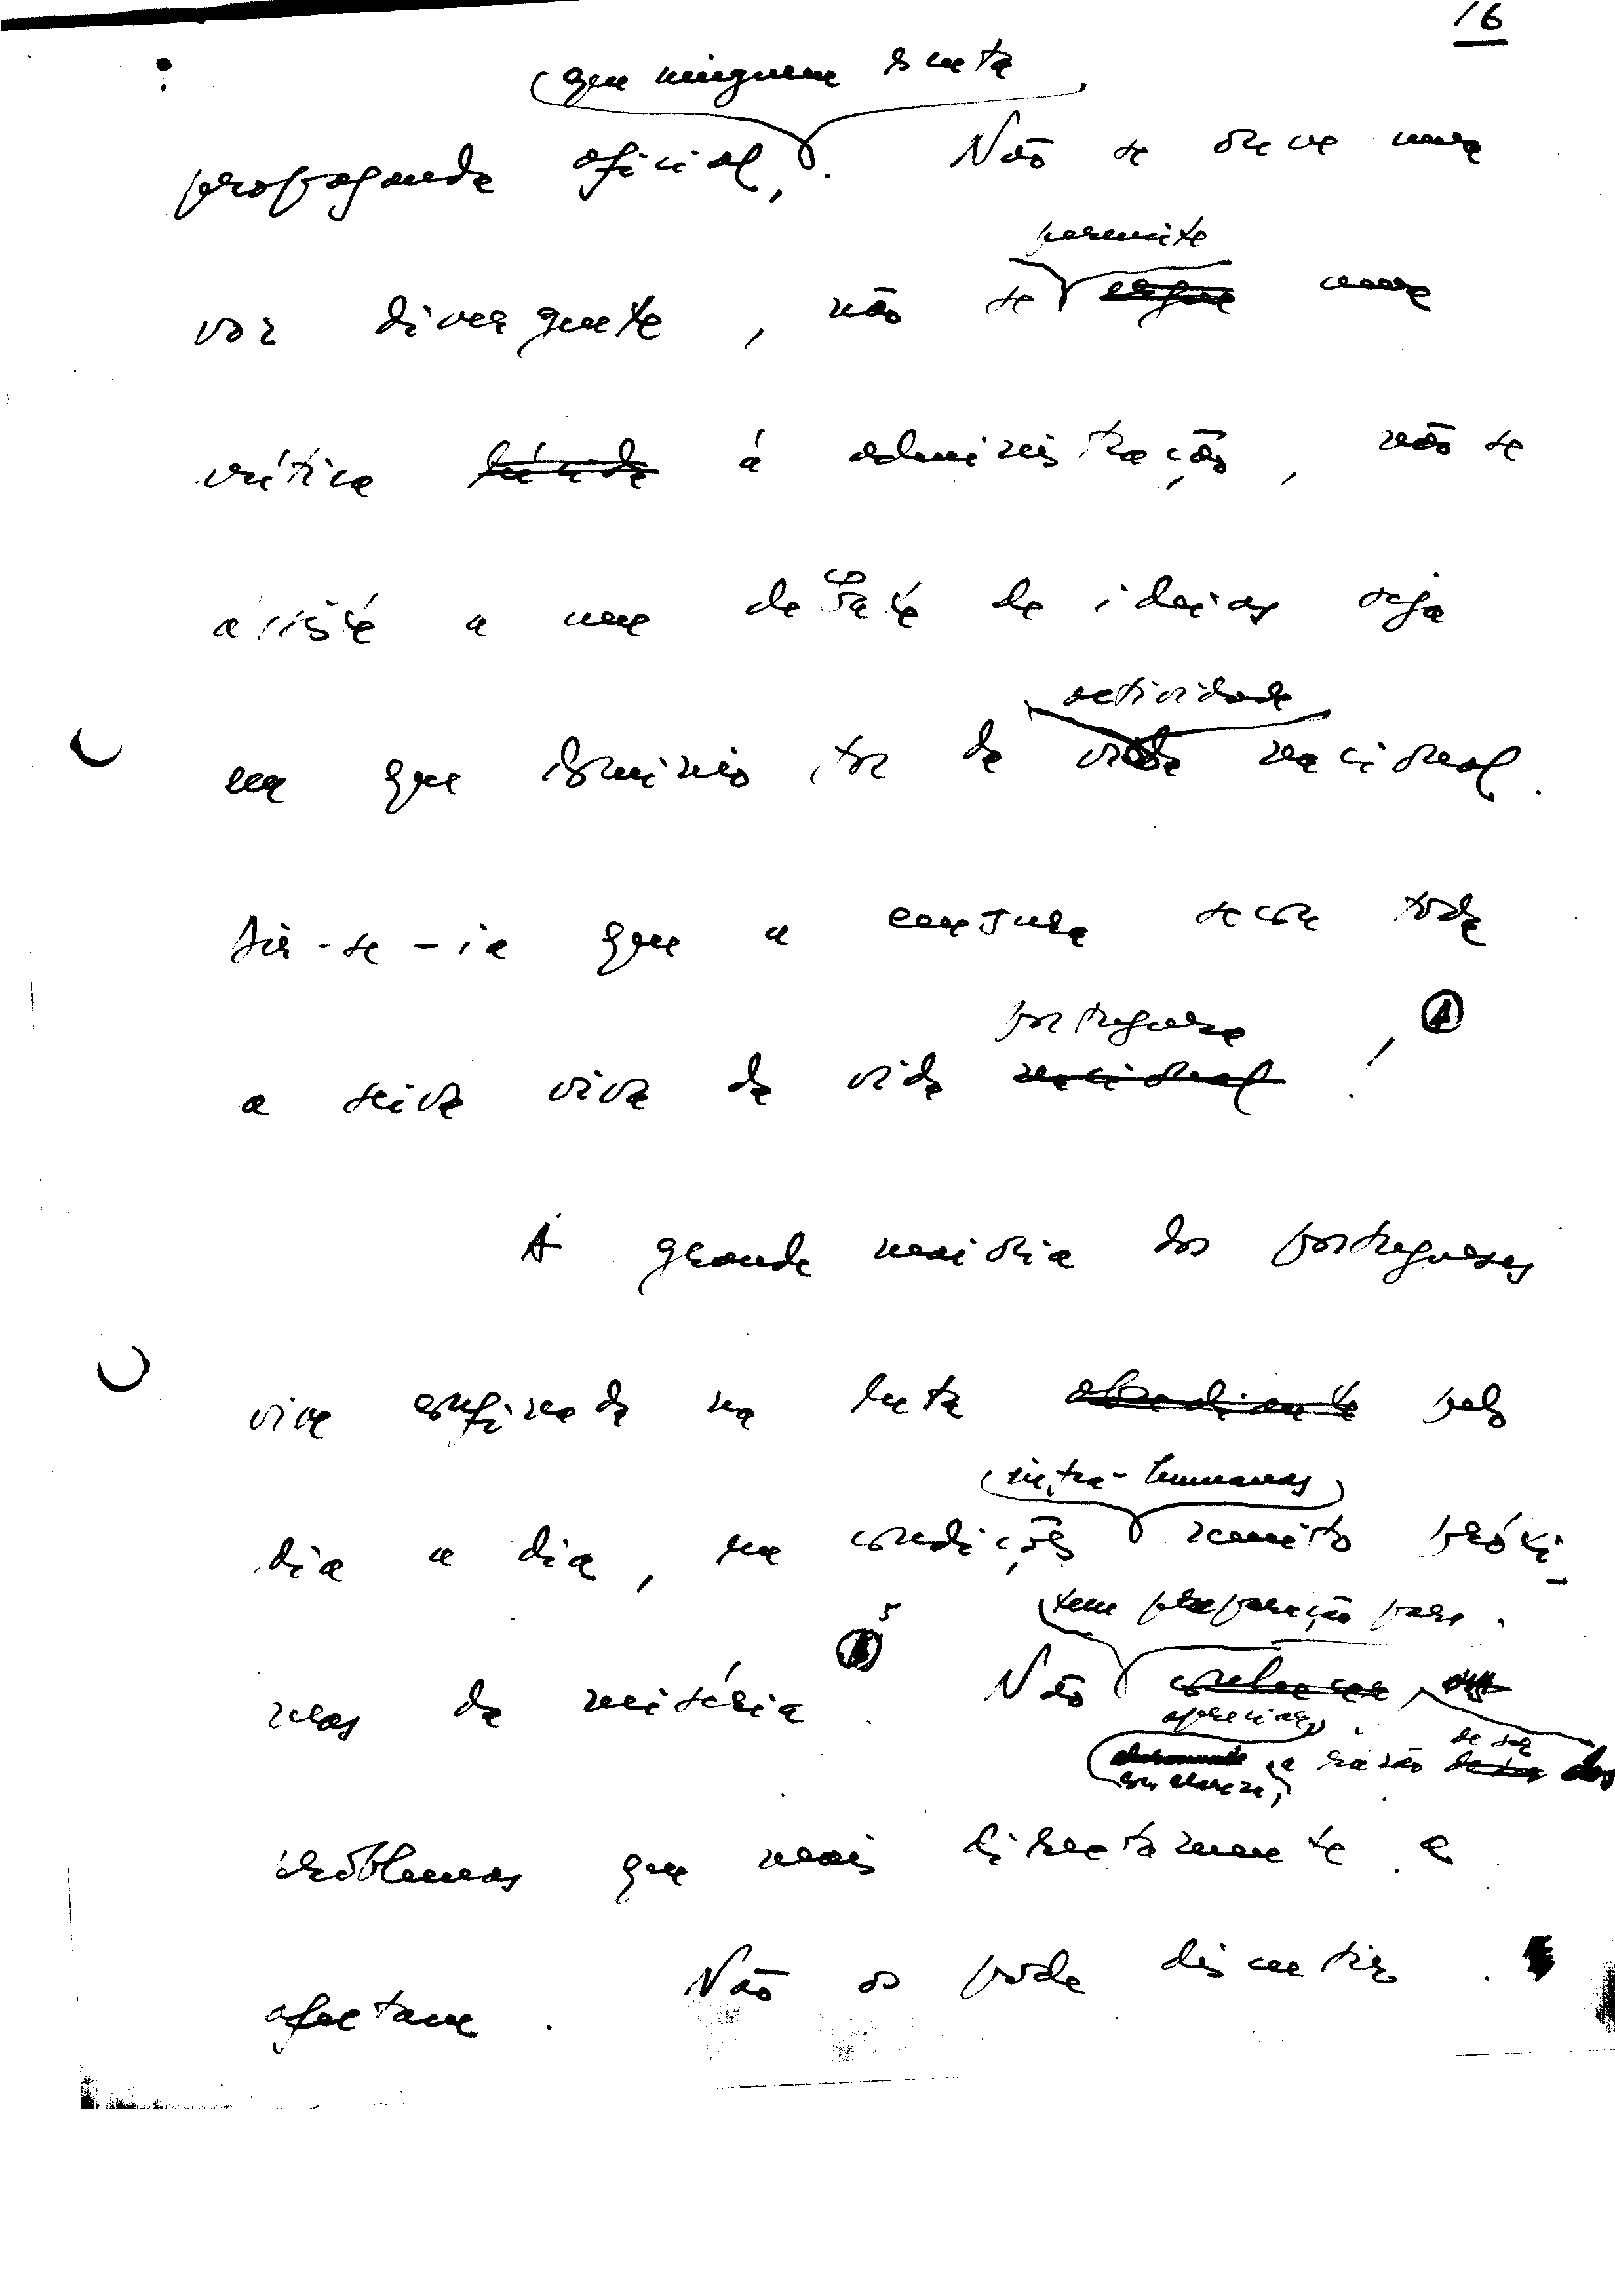 16
que ninguem escuta
propaganda oficial, . Não se ouve uma
permite
voz divergente, não se ergue uma
crítica lúcida á administração, não se
assiste a um debate de ideias seja
actividade
em que dominio for da vida nacional.
Dir-se-ia que a censura secou toda
portuguesa
a seiva viva da vida nacional! 
A grande maioria dos portugueses
vive confinada na luta pelo
infra-humanas
dia a dia, em condições muito próxi-
5
tem preparação para
mas da miséria. Não conhecer os
apreciar,
com clareza, a razão de ser dos
problemas que mais directamente a
afectam. Não os pode discutir.